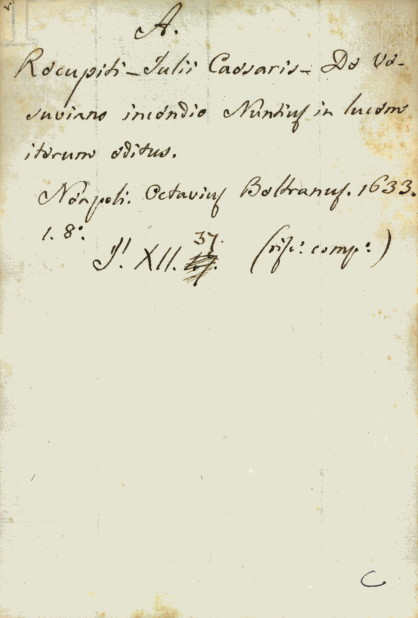 A.
Recupiti - Julii Caesaris - De Ve-
suviano incendio Nuntius in lucem
iterum editus.
Neapoli. Octavius Beltranus. 1633.
1. 8°.
37.
J! XII. (rif.° comp.°)
C